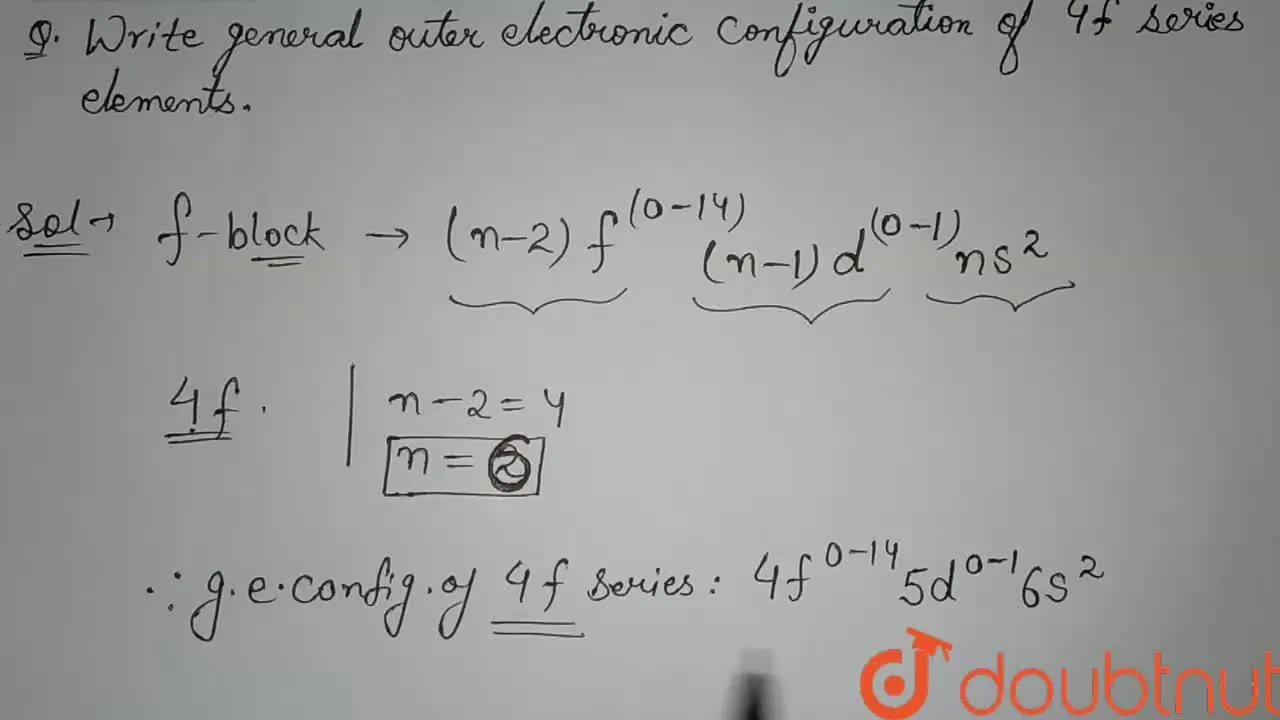 Q. Write general outer electronic configuration of 4f series
elements.
Sol→ f-block → (n-2) f^(0-14) (n-1) d^(0-1) ns²
4f. | n-2=4
n = 6
∴ g.e.config.of 4f series: 4f^0-14 5d^0-1 6s²
doubtnut